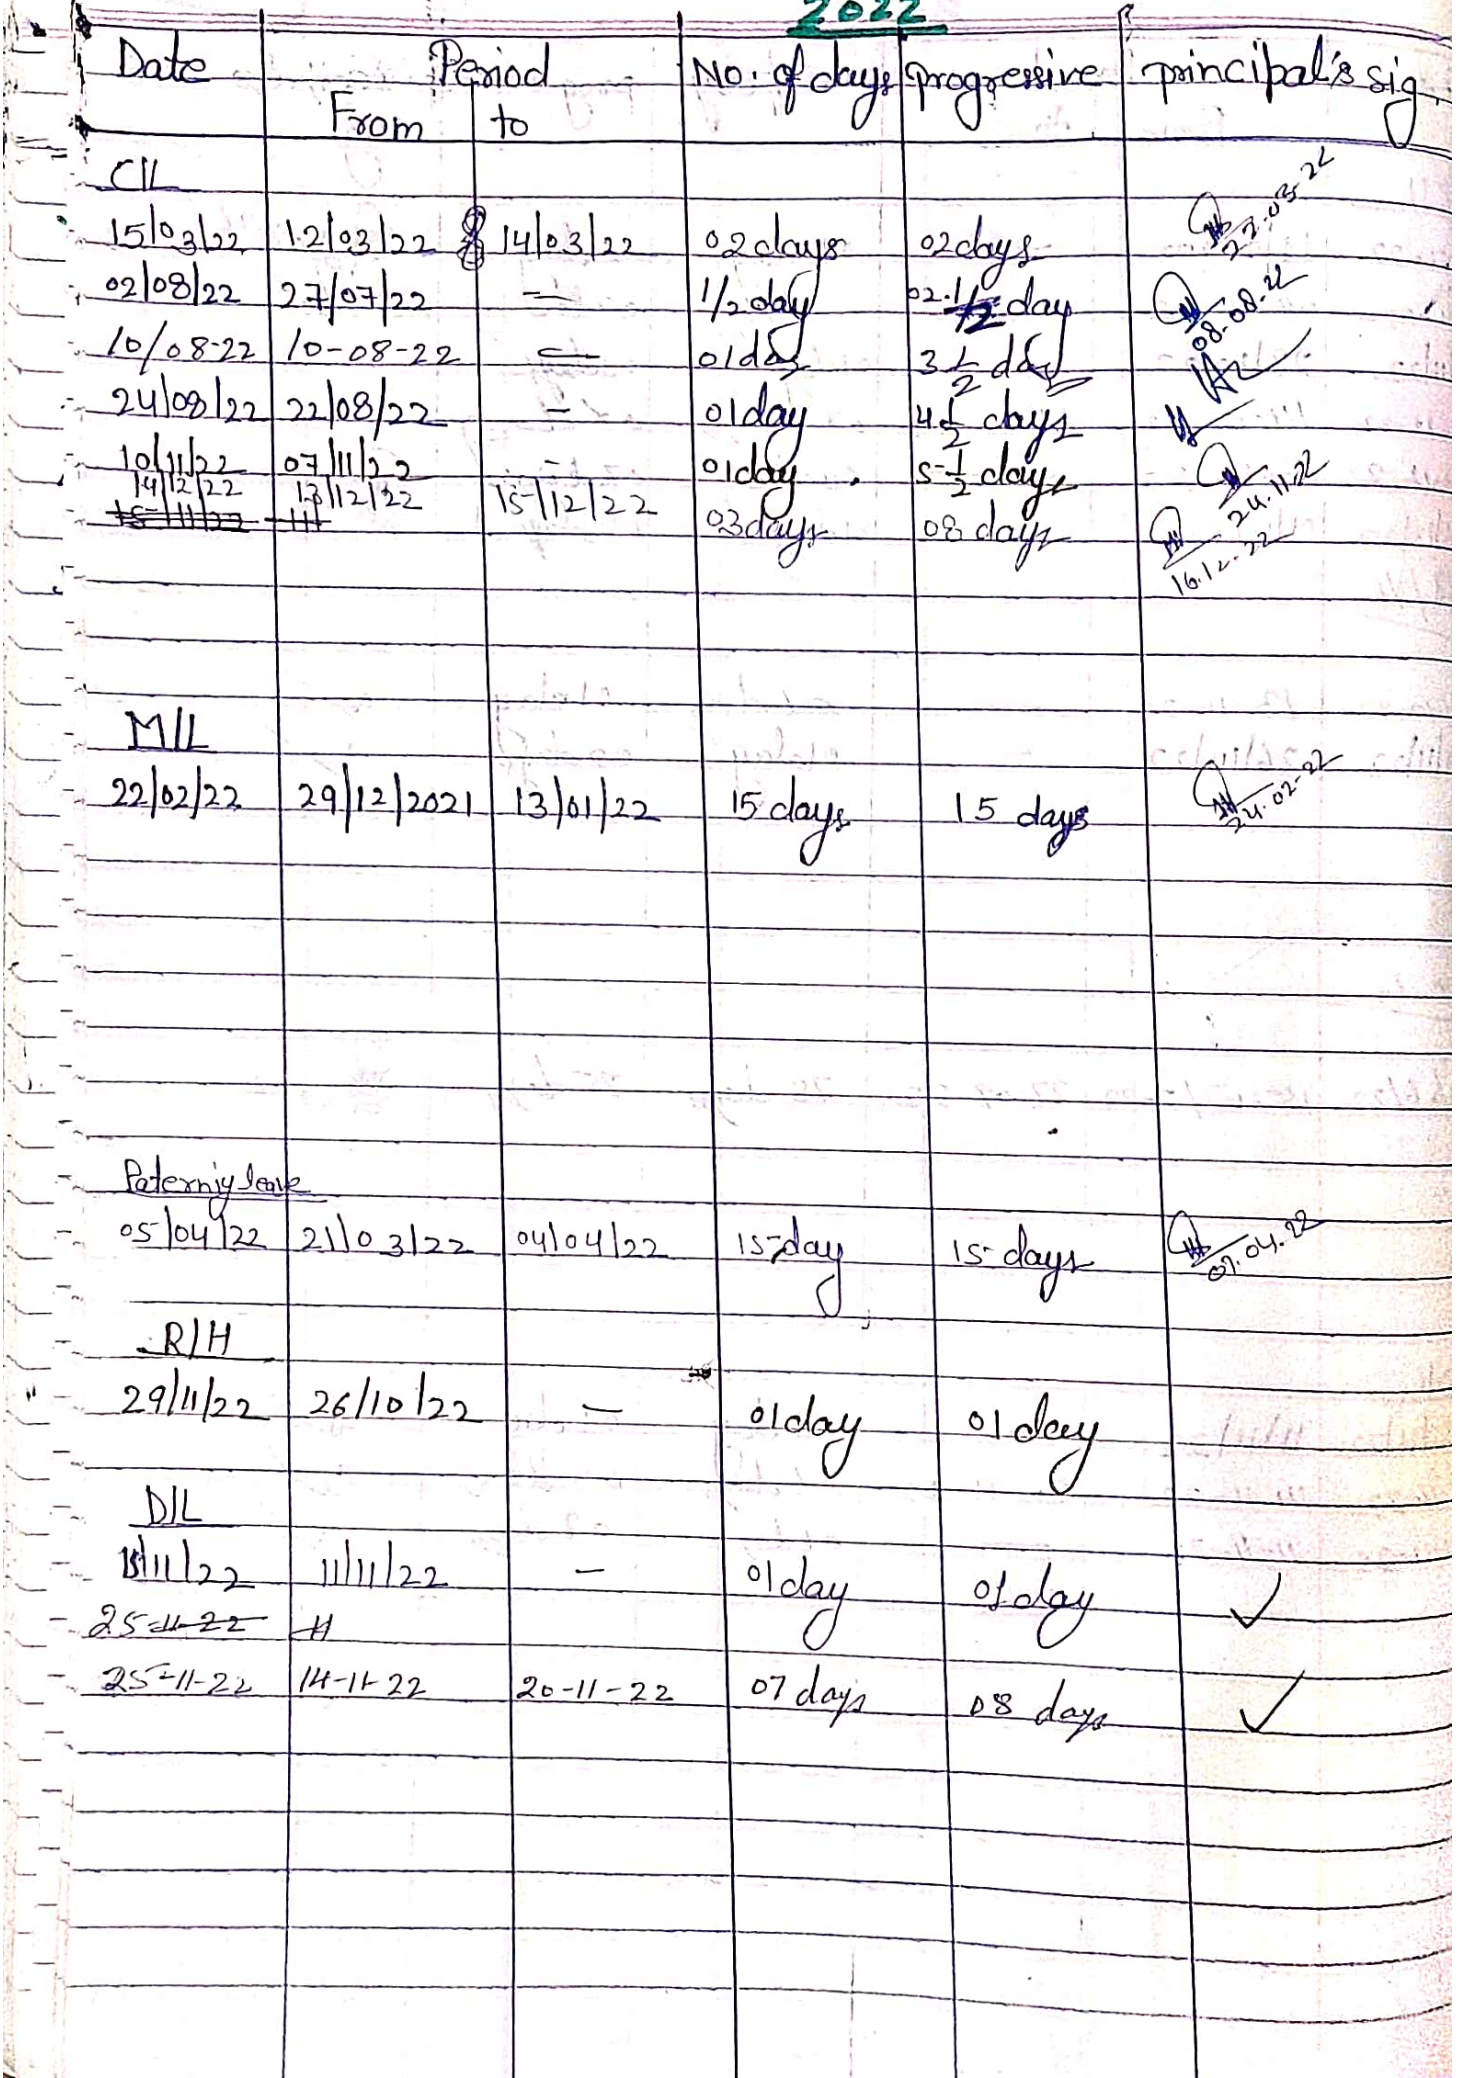 2022
Date Period No. of days progressive principal's sig.
From to
C/L
15/03/22 12/03/22 14/03/22 02 days 02 days 22.03.22
02/08/22 27/07/22 — 1/2 day 02.1/2 day 08.08.22
10/08-22 10-08-22 — 01 day 3 1/2 day
24/08/22 22/08/22 — 01 day 4 1/2 days
10/11/22 07/11/22 - 01 day 5-1/2 days 24.11.22
14/12/22 13/12/22 15/12/22 03 days 08 days 16.12.22
15/11/22 11
M/L
22/02/22 29/12/2021 13/01/22 15 days 15 days 24.02-22
Paterniy leave
05/04/22 21/03/22 04/04/22 15 day 15 days 07.04.22
R/H
29/11/22 26/10/22 — 01 day 01 day
D/L
15/11/22 11/11/22 — 01 day 01 day
25-11-22 11
25-11-22 14-11-22 20-11-22 07 days 08 days